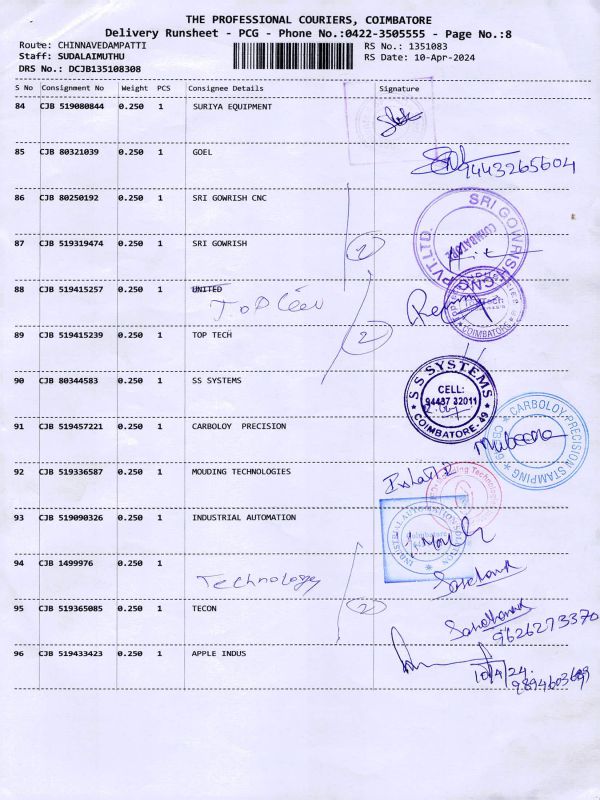 THE PROFESSIONAL COURIERS, COIMBATORE
Delivery Runsheet - PCG - Phone No.:0422-3505555 - Page No.:8
Route: CHINNAVEDAMPATTI RS No.: 1351083
Staff: SUDALAIMUTHU RS Date: 10-Apr-2024
DRS No.: DCJB135108308
S No Consignment No Weight PCS Consignee Details Signature
84 CJB 519080844 0.250 1 SURIYA EQUIPMENT
85 CJB 80321039 0.250 1 GOEL
9443265604
86 CJB 80250192 0.250 1 SRI GOWRISH CNC
SRI GOWRISH CNC PVT.LTD.
COIMBATORE
87 CJB 519319474 0.250 1 SRI GOWRISH
2
88 CJB 519415257 0.250 1 UNITED
COIMBATORE
89 CJB 519415239 0.250 1 TOP TECH
2
90 CJB 80344583 0.250 1 SS SYSTEMS
S S SYSTEMS
CELL:
94437 32011
COIMBATORE-49
91 CJB 519457221 0.250 1 CARBOLOY PRECISION
CARBOLOY PRECISION STAMPING
Mubeena
92 CJB 519336587 0.250 1 MOUDING TECHNOLOGIES
93 CJB 519090326 0.250 1 INDUSTRIAL AUTOMATION
INDUSTRIAL AUTOMATION SOLUTION
Coimbatore
94 CJB 1499976 0.250 1
Technology
95 CJB 519365085 0.250 1 TECON
2
9626273370
96 CJB 519433423 0.250 1 APPLE INDUS
10/4/24.
9894603693